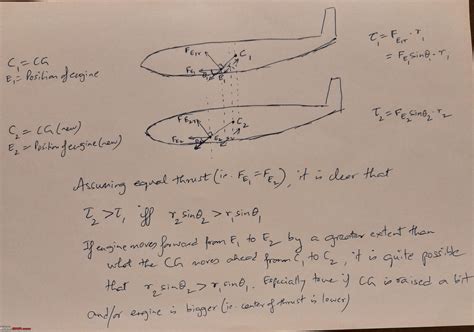 C₁ = CG
E₁ = Position of engine
F_E1r
F_E1
θ₁
E₁
C₁
τ₁ = F_E1r · r₁
= F_E1 sinθ₁ · r₁
C₂ = CG (new)
E₂ = Position of engine (new)
F_E2r
F_E2
E₂
C₂
τ₂ = F_E2 sinθ₂ · r₂
Assuming equal thrust (ie. F_E1 = F_E2), it is clear that
τ₂ > τ₁ iff r₂ sinθ₂ > r₁ sinθ₁
If engine moves forward from E₁ to E₂ by a greater extent than
what the CG moves ahead from C₁ to C₂, it is quite possible
that r₂ sinθ₂ > r₁ sinθ₁. Especially true if CG is raised a bit
and/or engine is bigger (ie. center of thrust is lower)